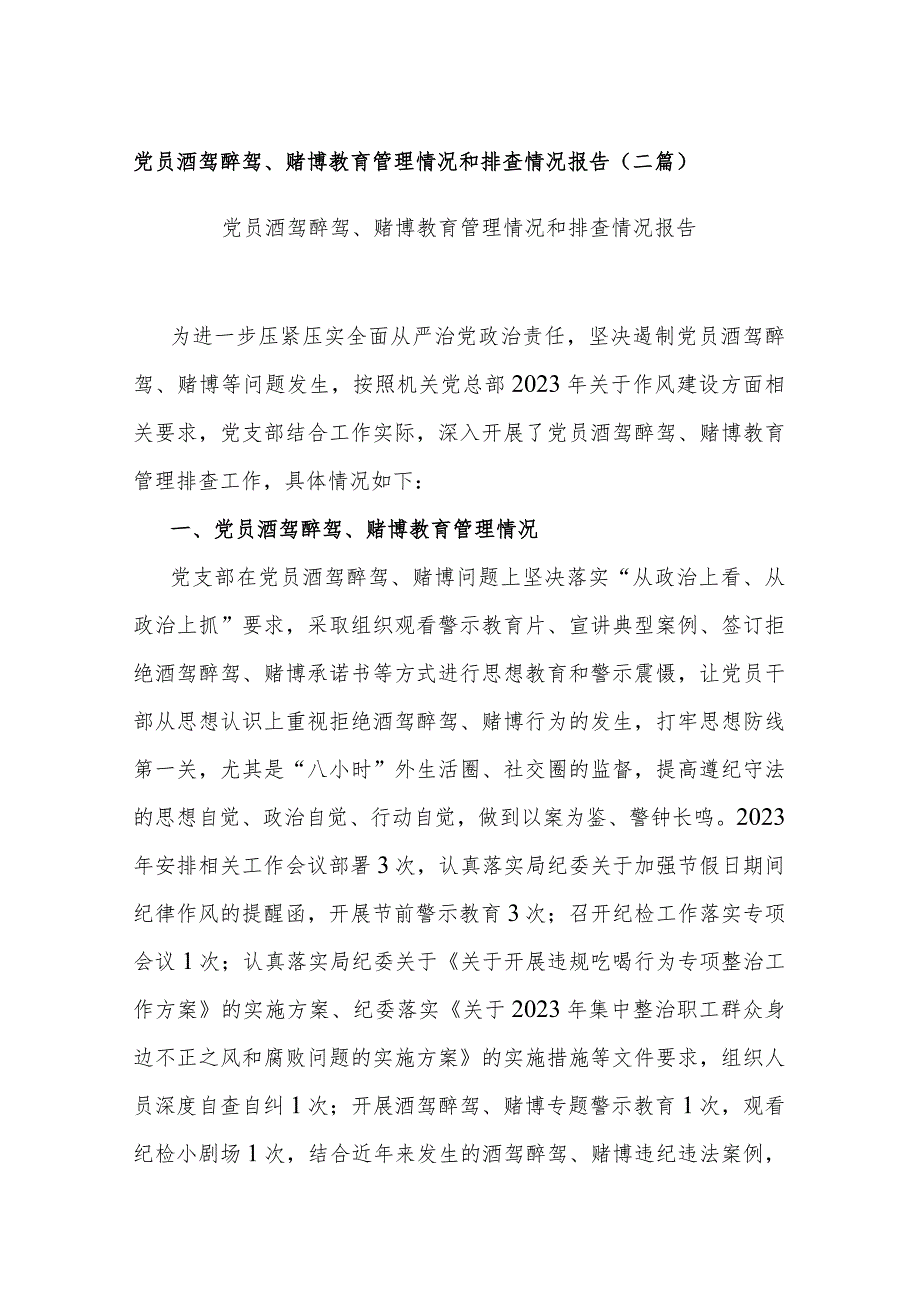 党员酒驾醉驾、赌博教育管理情况和排查情况报告（二篇）
党员酒驾醉驾、赌博教育管理情况和排查情况报告
为进一步压紧压实全面从严治党政治责任，坚决遏制党员酒驾醉
驾、赌博等问题发生，按照机关党总部 2023 年关于作风建设方面相
关要求，党支部结合工作实际，深入开展了党员酒驾醉驾、赌博教育
管理排查工作，具体情况如下：
一、党员酒驾醉驾、赌博教育管理情况
党支部在党员酒驾醉驾、赌博问题上坚决落实“从政治上看、从
政治上抓”要求，采取组织观看警示教育片、宣讲典型案例、签订拒
绝酒驾醉驾、赌博承诺书等方式进行思想教育和警示震慑，让党员干
部从思想认识上重视拒绝酒驾醉驾、赌博行为的发生，打牢思想防线
第一关，尤其是“八小时”外生活圈、社交圈的监督，提高遵纪守法
的思想自觉、政治自觉、行动自觉，做到以案为鉴、警钟长鸣。2023
年安排相关工作会议部署 3 次，认真落实局纪委关于加强节假日期间
纪律作风的提醒函，开展节前警示教育 3 次；召开纪检工作落实专项
会议 1 次；认真落实局纪委关于《关于开展违规吃喝行为专项整治工
作方案》的实施方案、纪委落实《关于 2023 年集中整治职工群众身
边不正之风和腐败问题的实施方案》的实施措施等文件要求，组织人
员深度自查自纠 1 次；开展酒驾醉驾、赌博专题警示教育 1 次，观看
纪检小剧场 1 次，结合近年来发生的酒驾醉驾、赌博违纪违法案例，